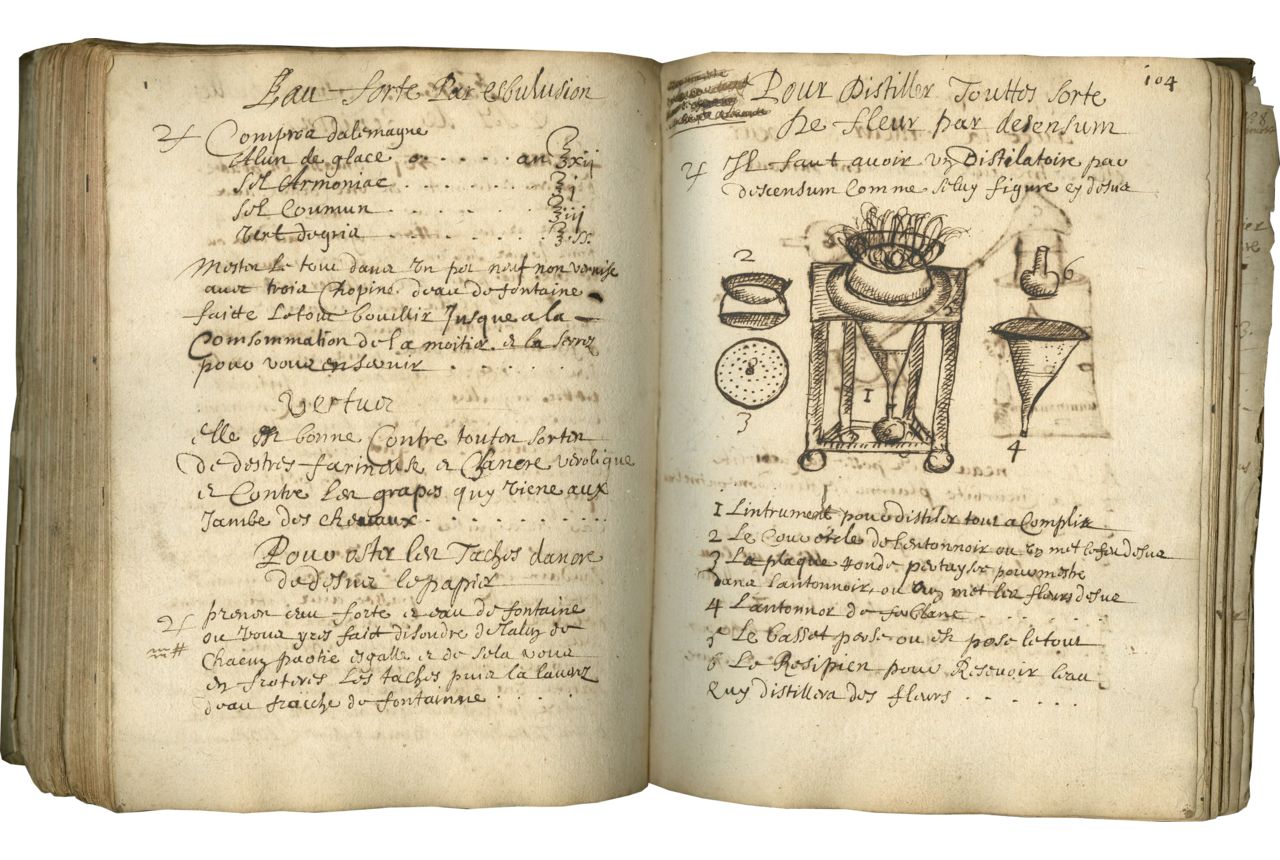 Eau forte Par esbulusion
♃ Comproa dalemagne
Alun de glace a . . . . . an ℥xij
sel Armoniac . . . . . . . ℥j
sel Coumun . . . . . . . ℥iij
vert degris . . . . . . . ℥ix
Mester le tout dans un pot neuf non vernise
avec trois Chopine deau de fontaine
faitte letout bouillir Jusque a la
Consommation de la moitier et la serrez
pour vous en servir
Vertus
elle est bonne Contre touttes sortes
de destres farineuse et Chancre verolique
et Contre les grapes quy viene aux
Jambe des chevaux
Pour oster les Taches dancre
de desus le papier
♃ prenes eau forte et eau de fontaine
ou vous yres fait disoudre de lalun de
Chacun partie esgalle et de sela vous
en froteres les taches puis la laverez
deau fraiche de fontainne
104
Pour Distiller Touttes sorte
De fleur par desensum
♃ Il faut avoir un Distelatoire par
descensum Comme seluy figure cy desus
2
6
8
3
1
4
1 Lintrument pour distiler tout a Complit
2 Le Couvercle de lentonnoir ou on met le feu desus
3 La plaque Ronde pertuyser pour mestre
dans lantonnoir, ou on met les fleurs desus
4 Lantonnor de ferblanc
5 Le basset perse ou est pose le tout
6 Le Resipien pour Resevoir leau
Quy distillera des fleurs